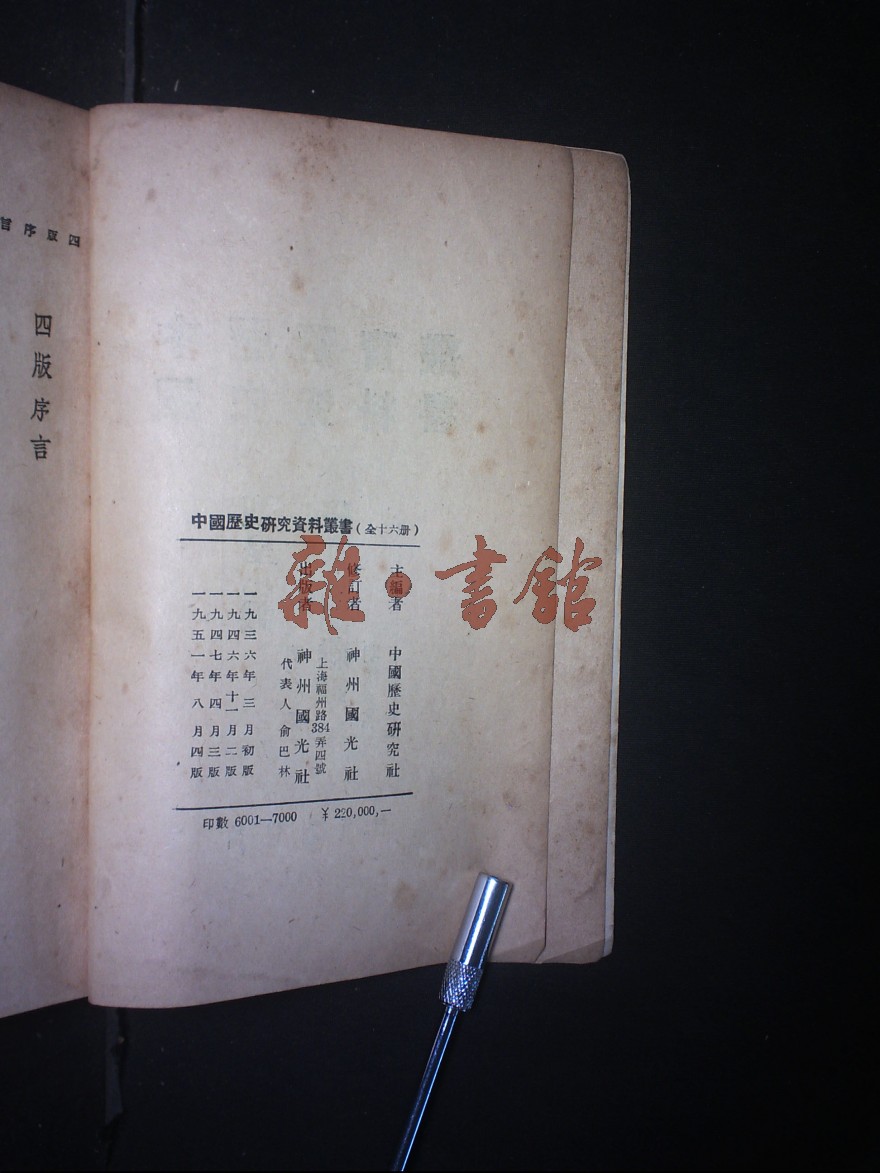 四版序言
四版序言
中國歷史研究資料叢書(全十六册)
主編者 中國歷史研究社
修訂者 神州國光社
出版者 神州國光社
上海福州路384弄四號
代表人俞巴林
一九三六年三月初版
一九四六年十一月二版
一九四七年四月三版
一九五一年八月四版
印數 6001—7000 ¥220,000,—
雜·書館